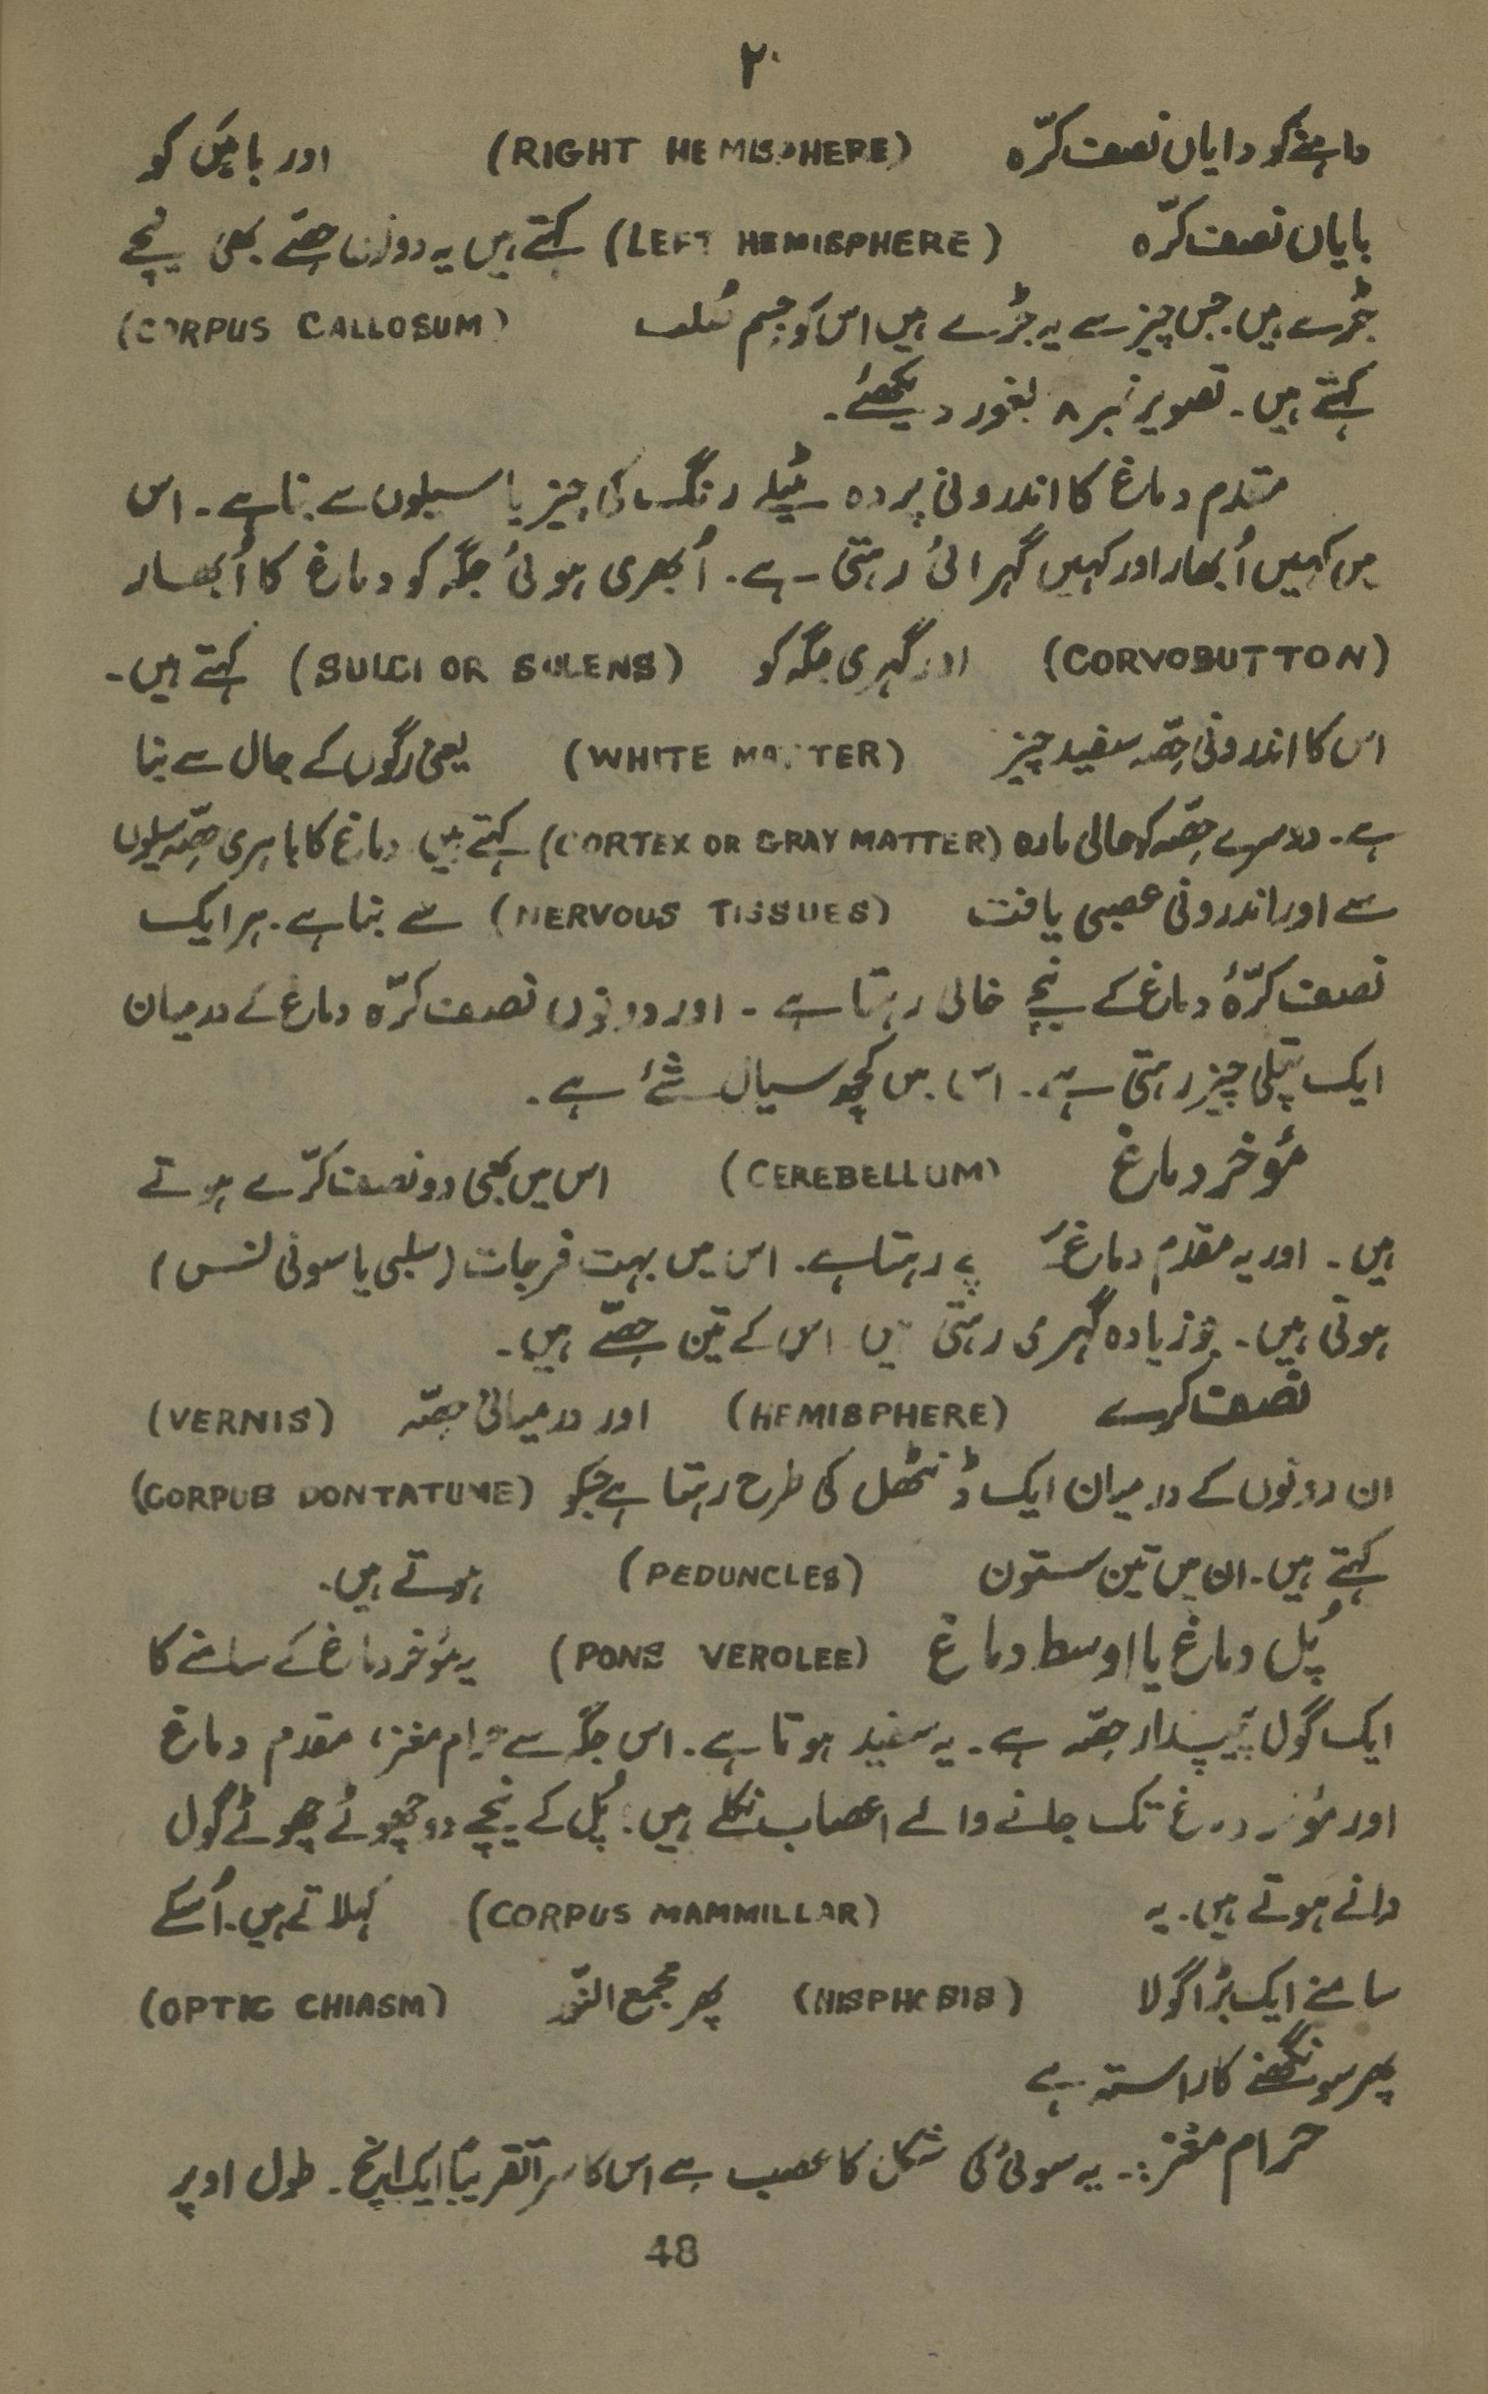 ۲۰
داہنے کو دایاں نصف کرّہ (RIGHT HEMISPHERE) اور بائیں کو
بایاں نصف کرّہ (LEFT HEMISPHERE) کہتے ہیں یہ دونوں حصّے بھی نیچے
جُڑے ہیں۔ جس چیز سے یہ جُڑے ہیں اس کو جسم (CORPUS CALLOSUM)
کہتے ہیں۔ تصویر نمبر ۸ بغور دیکھئے۔
مقدم دماغ کا اندرونی پردہ مٹیلے رنگ کی چیز یا سیلوں سے بنا ہے۔ اس
میں کہیں اُبھار اور کہیں گہرائی رہتی ہے۔ اُبھری ہوئی جگہ کو دماغ کا اُبھار
(CORVOBUTTON) اور گہری جگہ کو (SULCI OR SULENS) کہتے ہیں۔
اس کا اندرونی حصّہ سفید چیز (WHITE MATTER) یعنی رگوں کے جال سے بنا
ہے۔ دوسرے حصّہ کو خالی مادہ (CORTEX OR GRAY MATTER) کہتے ہیں دماغ کا باہری حصّہ سیلوں
سے اور اندرونی عصبی یافت (NERVOUS TISSUES) سے بنا ہے۔ ہر ایک
نصف کرّۂ دماغ کے نیچے خالی رہتا ہے۔ اور دونوں نصف کرّہ دماغ کے درمیان
ایک پتلی چیز رہتی ہے۔ اس میں کچھ سیال شئے ہے۔
مُؤخر دماغ (CEREBELLUM) اس میں بھی دو نصف کرّے ہوتے
ہیں۔ اور یہ مقدم دماغ کے رہتا ہے۔ اس میں بہت فرجات (سلبی یا سوئی لنس)
ہوتی ہیں۔ جو زیادہ گہری رہتی ہیں اس کے تین حصّے ہیں۔
نصف کرے (HEMISPHERE) اور درمیانی حصّہ (VERNIS)
ان دونوں کے درمیان ایک ڈنٹھل کی طرح رہتا ہے جسکو (CORPUB DONTATUME)
کہتے ہیں۔ ان میں تین ستون (PEDUNCLES) ہوتے ہیں۔
پُل دماغ یا اوسط دماغ (PONS VEROLEE) یہ مؤخر دماغ کے سامنے کا
ایک گول پیپدار حصّہ ہے۔ یہ سفید ہوتا ہے۔ اس جگہ سے حرام مغز، مقدم دماغ
اور مؤخر دماغ تک جانے والے اعصاب نکلے ہیں۔ پُل کے نیچے دو چھوٹے چھوٹے گول
دانے ہوتے ہیں۔ یہ (CORPUS MAMMILLAR) کہلاتے ہیں۔ اُسکے
سامنے ایک بڑا گولا (HISPHOSIS) پھر مجمع النّور (OPTIC CHIASM)
پھر سونگھنے کا راستہ ہے
حرام مغز:۔ یہ سوئی کی شکل کا عصب ہے اس کا سرا تقریباً ایک انچ۔ طول اوپر
48